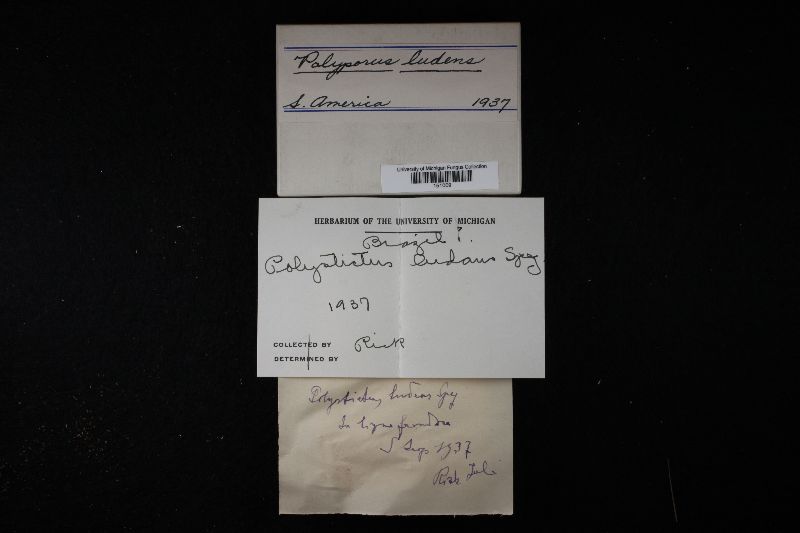 Polyporus ludens
S. America 1937
University of Michigan Fungus Collection
151009
HERBARIUM OF THE UNIVERSITY OF MICHIGAN
Brazil ?.
Polystictus ludens Speg.
1937
COLLECTED BY Rick
DETERMINED BY
Polystictus ludens Speg
In ligno
1937
Rick